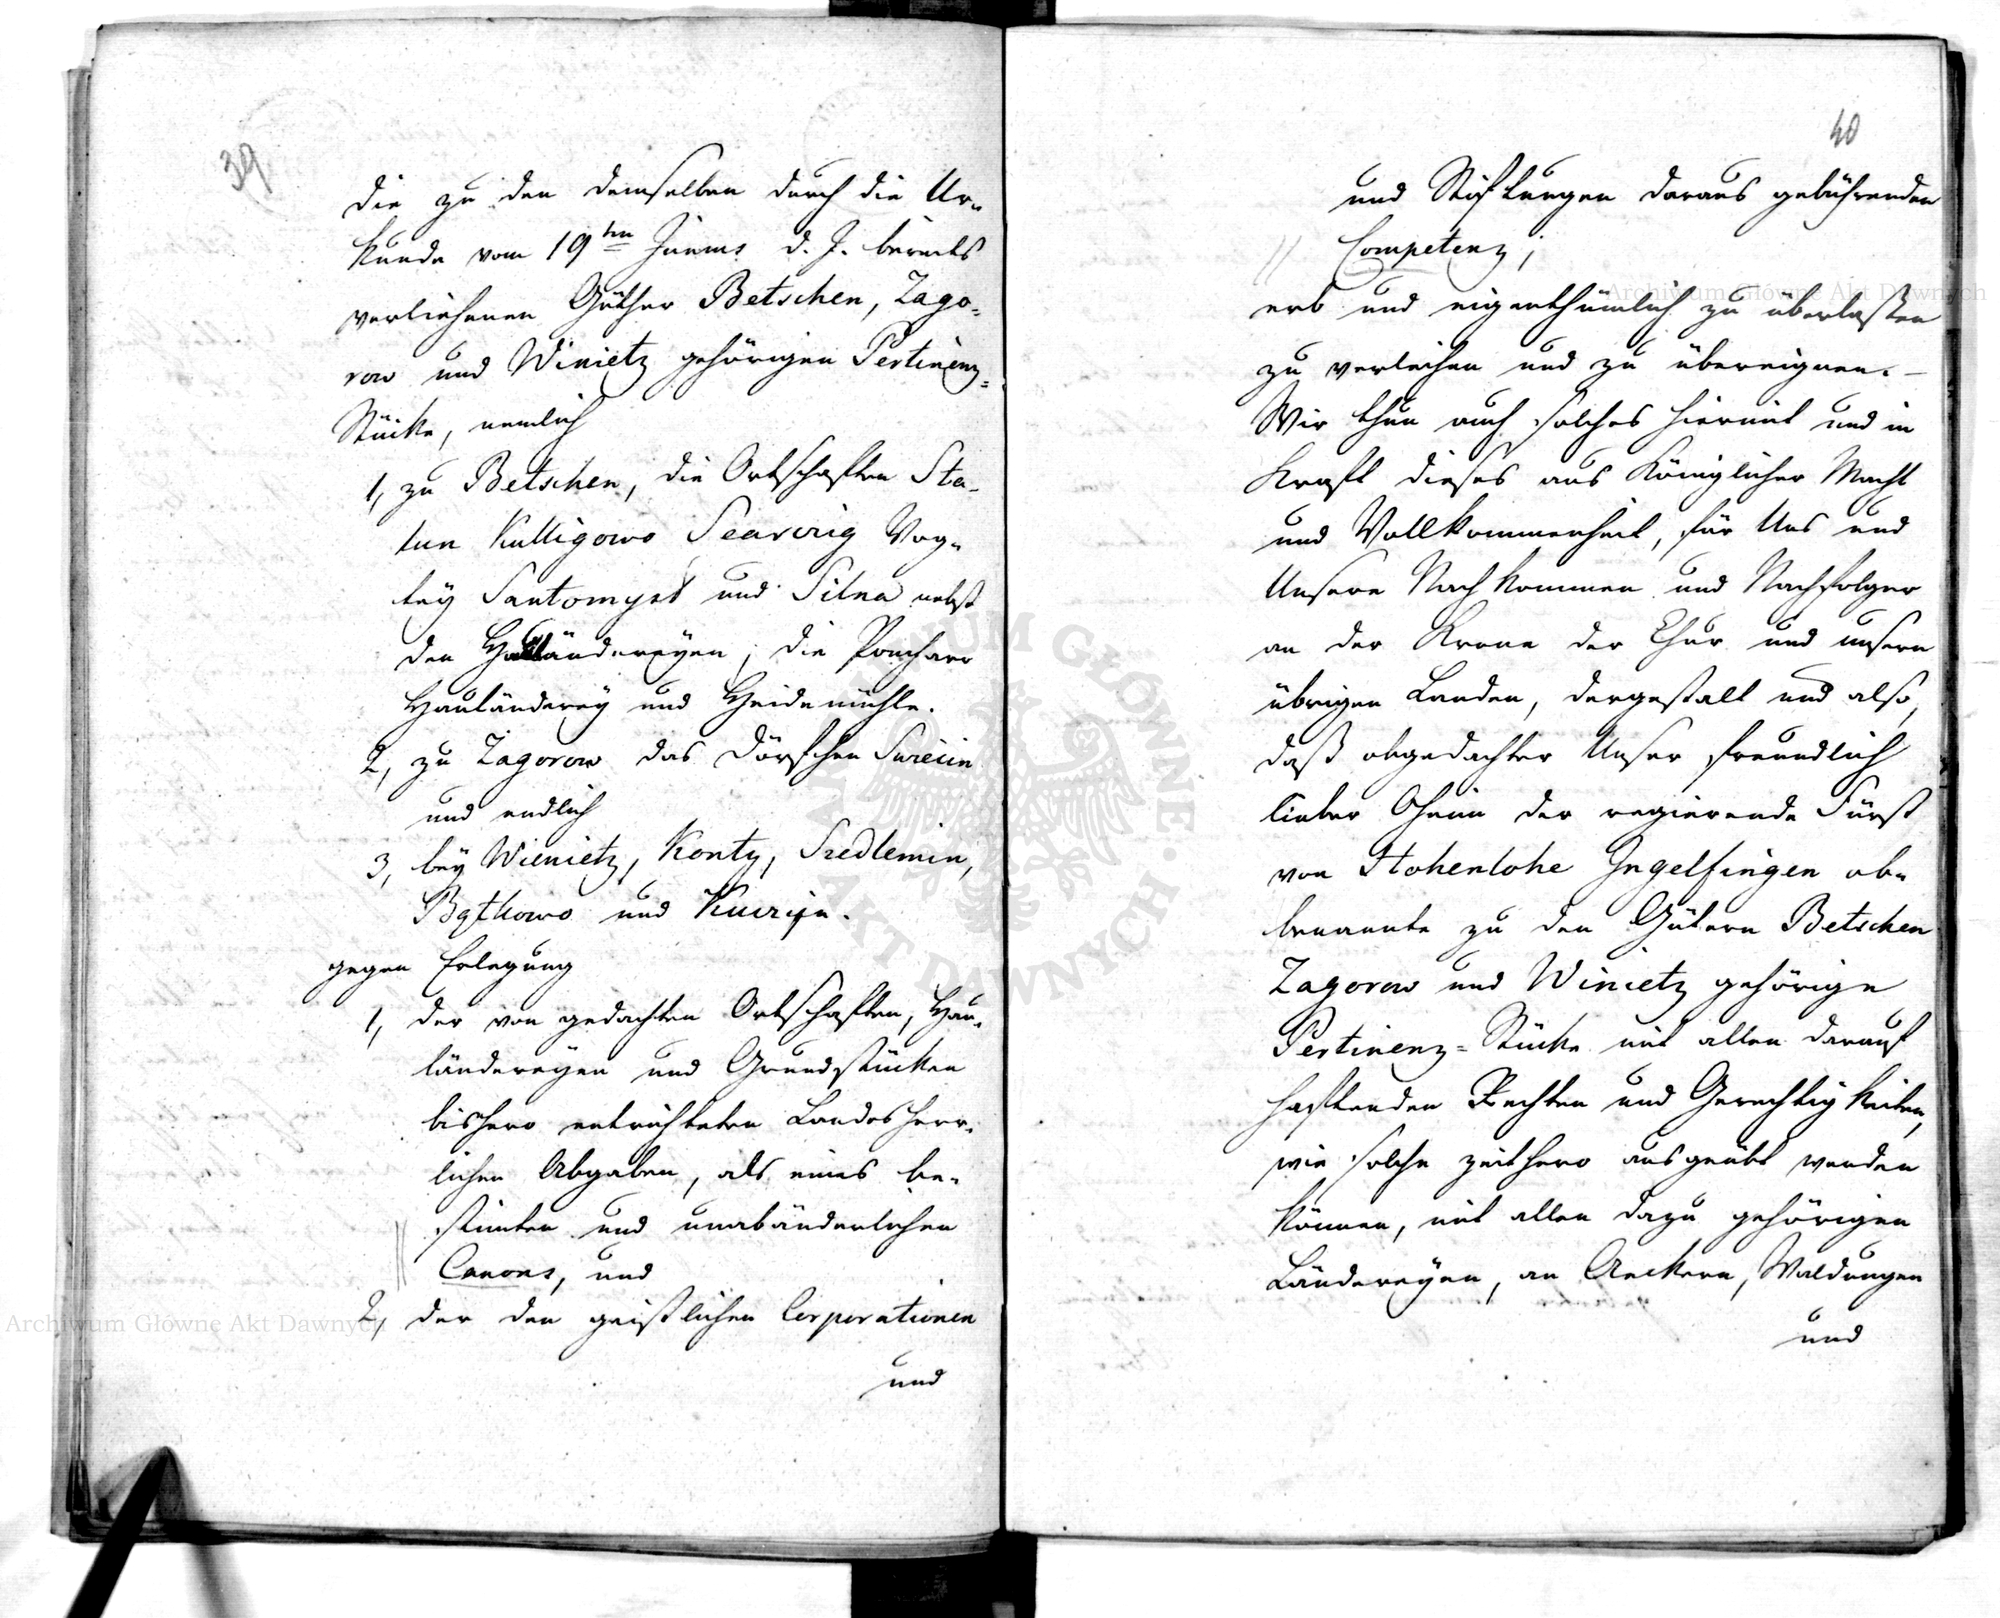 39
die zu den demselben durch die Ur-
kunde vom 19ten Junius d. J. bereits
verliehenen Güther Betschen, Zago-
row und Winietz gehörigen Pertinenz-
Stücke, nemlich
1, zu Betschen, die Ortschaften Sta-
lun Kulligowo Vog-
tey Santomysl und Silna nebst
den Hauländereyen, die
Hauländerey und Heidemühle.
2, zu Zagorow das Dörfchen
und endlich
3, bey Wienietz, Konty, Szedlemin,
und
gegen Erlegung
1, der von gedachten Ortschaften, Hau-
ländereyen und Grundstücken
bishero entrichteten Landesherr-
lichen Abgaben, als eines be-
stimten und unabänderlichen
Canons, und
2, der den geistlichen Corporationen
und
40
und Stiftungen daraus gebührenden
Competenz;
erb und eigenthümlich zu überlaßen
zu verleihen und zu übereignen. –
Wir thun auch solches hiermit und in
Kraft dieses aus Königlicher Macht
und Vollkommenheit, für Uns und
Unsere Nachkommen und Nachfolger
an der Krone der Chur und unsern
übrigen Landen, dergestalt und also,
daß obgedachter Unser freundlich
lieber Oheim der regierende Fürst
von Hohenlohe Ingelfingen ob-
benannte zu den Gütern Betschen
Zagorow und Winietz gehörige
Pertinenz-Stücke mit allen darauf
haftenden Rechten und Gerechtigkeiten,
wie solche zeithero ausgeübt werden
können, mit allen dazu gehörigen
Ländereyen, an Aeckern, Waldungen
und
Archiwum Główne Akt Dawnych
Archiwum Główne Akt Dawnych
ARCHIWUM GŁÓWNE AKT DAWNYCH